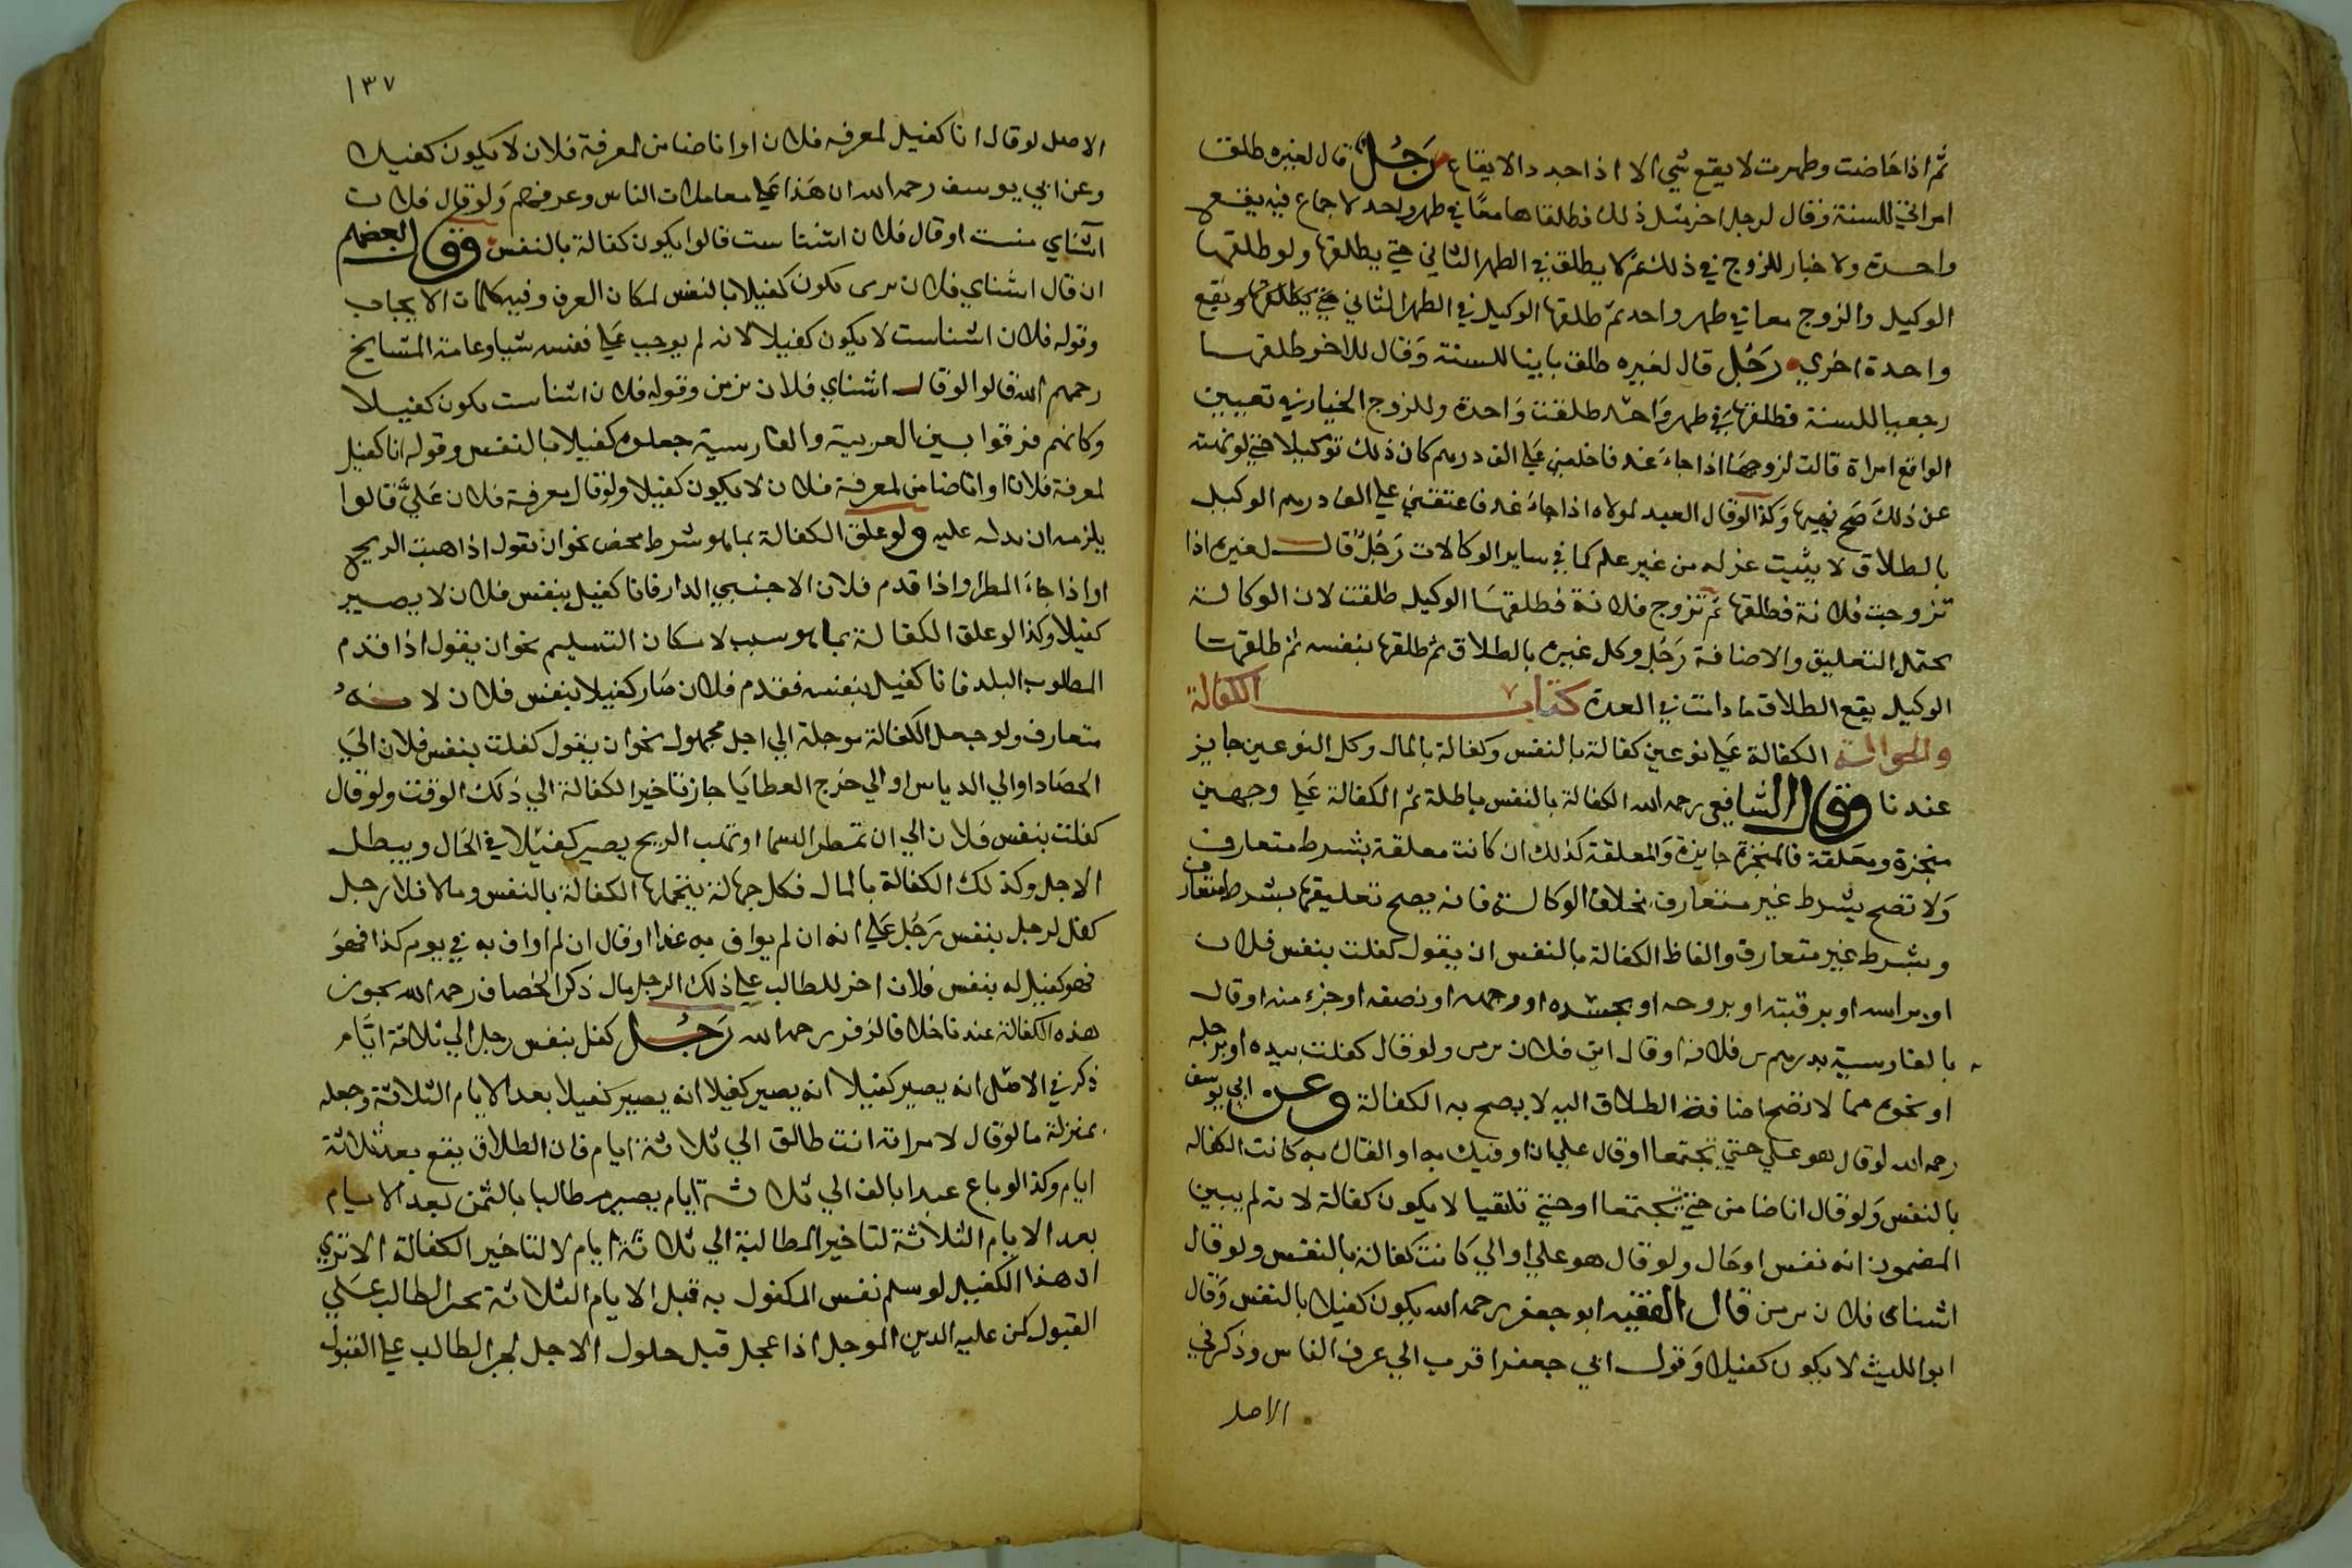 ثم اذا حاضت وطهرت لا يقع شي الا اذا جدد الايقاع رجل قال لغيره طلق
امراتي للسنة وقال لرجل اخر مثل ذلك فطلقاها معًا في طهر واحد لا جماع فيه يقع
واحدة ولا خيار للزوج في ذلك ثم لا يطلق في الطهر الثاني حتي يطلقها ولو طلقها
الوكيل والزوج معا في طهر واحد ثم طلقها الوكيل في الطهر الثاني يطلقها ويقع
واحدة اخري رجل قال لغيره طلق باينا للسنة وقال للاخر طلقها
رجعيا للسنة فطلقها في طهر واحد طلقت واحدة وللزوج الخيار في تعيين
الواقع امراة قالت لزوجها اذا جاء غد فاخلعني علي الف درهم كان ذلك توكيلا حتي لو نهته
عن ذلك صح نهيها وكذا لو قال العبد لمولاه اذا جاء غد فاعتقني علي الف درهم الوكيل
بالطلاق لا يثبت عزله من غير علم كما في ساير الوكالات رجل قال لغيره اذا
تزوجت فلانة فطلقها ثم تزوج فلانة فطلقها الوكيل طلقت لان الوكالة
تحتمل التعليق والاضافة رجل وكل غيره بالطلاق ثم طلقها بنفسه ثم طلقها
الوكيل يقع الطلاق ما دامت في العدة كتاب الكفالة
والحوالة الكفالة علي نوعين كفالة بالنفس وكفالة بالمال وكل النوعين جايز
عندنا وقال الشافعي رحمه الله الكفالة بالنفس باطلة ثم الكفالة علي وجهين
منجزة ومعلقة فالمنجزة جايزة والمعلقة كذلك ان كانت معلقة بشرط متعارف
ولا تصح بشرط غير متعارف بخلاف الوكالة فانه يصح تعليقها بشرط متعارف
وبشرط غير متعارف والفاظ الكفالة بالنفس ان يقول كفلت بنفس فلان
او براسه او برقبته او بروحه او بجسده او وجهه او نصفه او جزء منه او قال
بالفارسية فلان او قال فلان ولو قال كفلت بيده او برجله
او نحوه مما لا تصح اضافة الطلاق اليه لا يصح به الكفالة وعن ابي يوسف
رحمه الله لو قال هو علي حتي تجتمعا او قال علي ان اوفيك به او القاك به كانت الكفاله
بالنفس ولو قال انا ضامن حتي تجتمعا او حتي تلتقيا لا يكون كفالة لانه لم يبين
المضمون انه نفس او مال ولو قال هو علي او الي كانت كفالة بالنفس ولو قال
اشناى فلان بر من قال الفقيه ابو جعفر رحمه الله يكون كفيلا بالنفس وقال
ابو الليث لا يكون كفيلا وقول ابي جعفر اقرب الي عرف الناس وذكر في
الاصل
١٣٧
الاصل لو قال انا كفيل لمعرفه فلان او انا ضامن لمعرفة فلان لا يكون كفيلا
وعن ابي يوسف رحمه الله ان هذا علي معاملات الناس وعرفهم ولو قال فلان
اشناي منست او قال فلان اشناست قالوا يكون كفالة بالنفس وقال بعضهم
ان قال اشناي فلان يكون كفيلا بالنفس لمكان العرف وفيه كلمات الايجاب
وقوله فلان اشناست لا يكون كفيلا لانه لم يوجب علي نفسه شيا وعامة المشايخ
رحمهم الله قالوا لو قال اشناي فلان بر من وقوله فلان اشناست يكون كفيلا
وكانهم فرقوا بين العربية والفارسية جعلوه كفيلا بالنفس وقوله انا كفيل
لمعرفة فلان او انا ضامن لمعرفة فلان لا يكون كفيلا ولو قال معرفة فلان علي قالوا
يلزمه ان يدله عليه ولو علق الكفالة بما هو شرط محض نحو ان يقول اذا هبت الريح
او اذا جاء المطر او اذا قدم فلان الاجنبي الدار فانا كفيل بنفس فلان لا يصير
كفيلا وكذا لو علق الكفالة بما هو سبب لامكان التسليم نحو ان يقول اذا قدم
المطلوب البلد فانا كفيل بنفسه فقدم فلان صار كفيلا بنفس فلان لانه
متعارف ولو جعل الكفالة موجلة الي اجل مجهول نحو ان يقول كفلت بنفس فلان الي
الحصاد او الي الدياس او الي خرج العطايا جاز تاخير الكفالة الي ذلك الوقت ولو قال
كفلت بنفس فلان الي ان تمطر السما او تهب الريح يصير كفيلا في الحال ويبطل
الاجل وكذلك الكفالة بالمال فكل جهالة يتحملها الكفالة بالنفس وما لا فلا رجل
كفل لرجل بنفس رجل علي انه ان لم يواف به غدا او قال ان لم اواف به في يوم كذا فهو
فهو كفيل له بنفس فلان اخر للطالب علي ذلك الرجل مال ذكر الخصاف رحمه الله يجوز
هذه الكفالة عندنا خلافا لزفر رحمه الله رجل كفل بنفس رجل الي ثلاثة ايام
ذكر في الاصل انه يصير كفيلا انه يصير كفيلا انه يصير كفيلا بعد الايام الثلاثة وجعله
بمنزلة ما لو قال لامراته انت طالق الي ثلاثة ايام فان الطلاق يقع بعد ثلاثة
ايام وكذا لو باع عبدا بالف الي ثلاثة ايام يصير مطالبا بالثمن بعد الايام
بعد الايام الثلاثة لتاخير المطالبة الي ثلاثة ايام لا لتاخير الكفالة الا تري
ان هذا الكفيل لو سلم نفس المكفول به قبل الايام الثلاثة يجبر الطالب علي
القبول كمن عليه الدين الموجل اذا عجل قبل حلول الاجل يجبر الطالب علي القبول